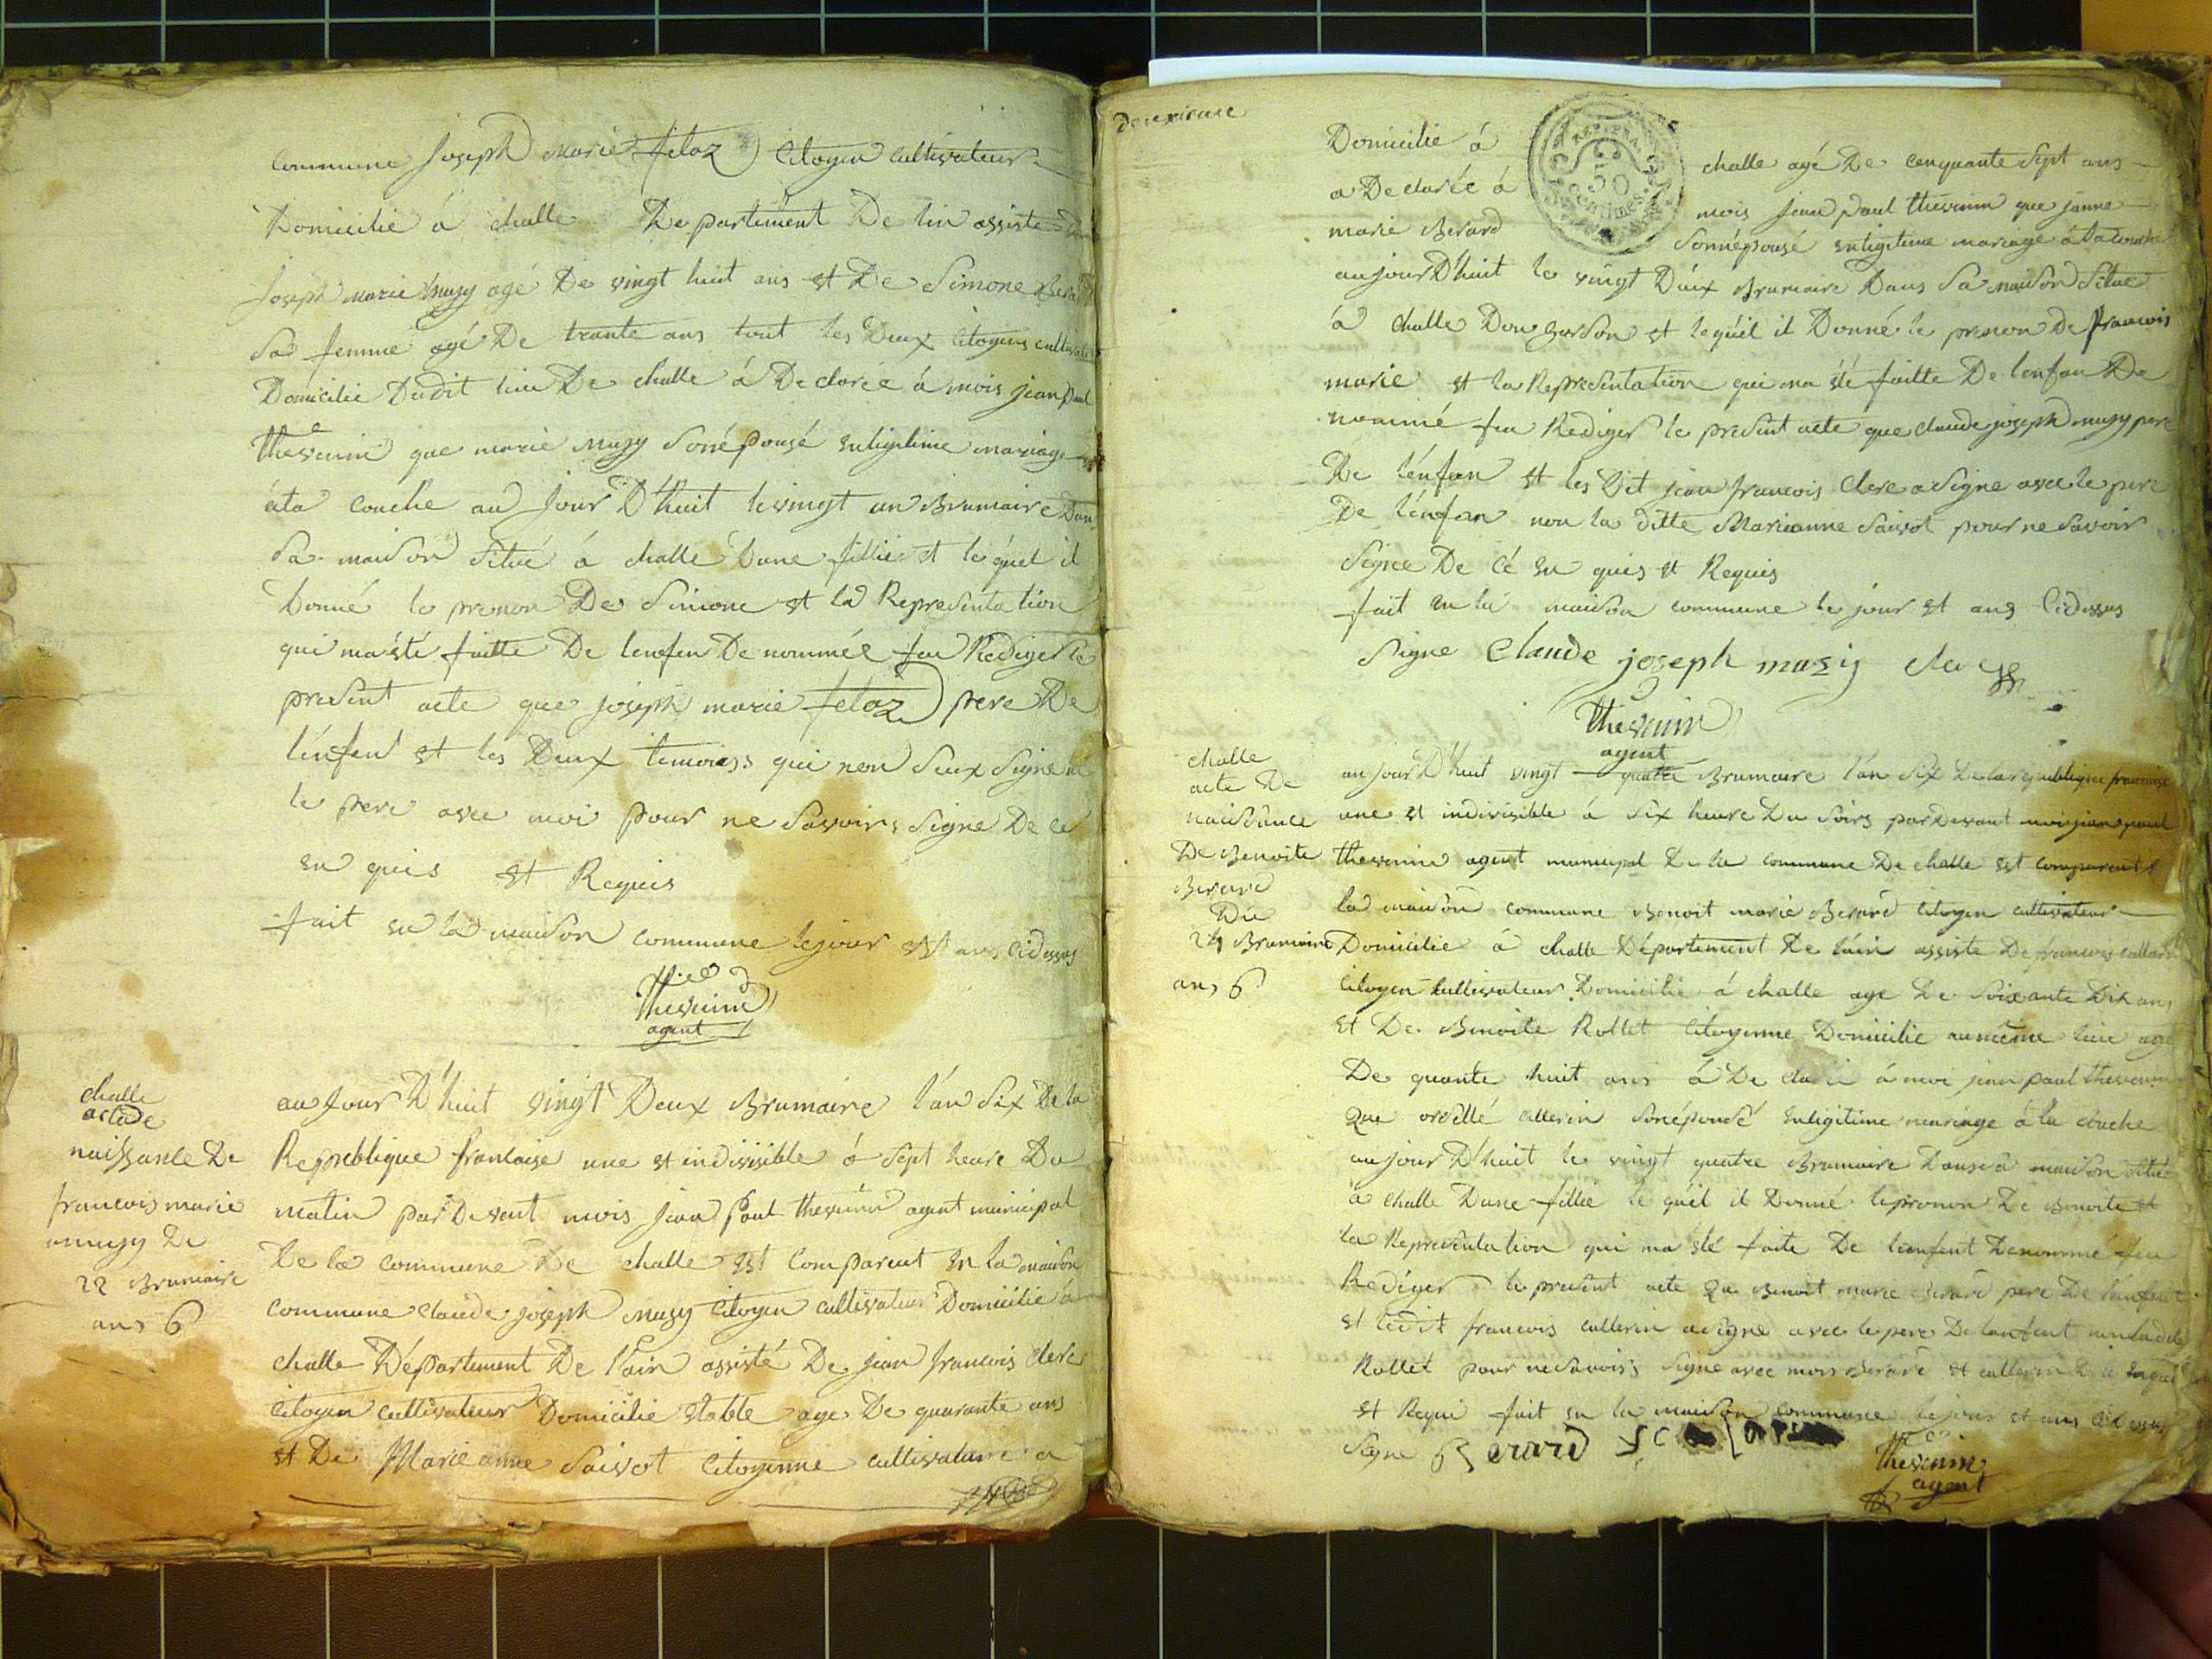 commune Joseph Marie felaz Citoyen cultivateur
Domicilié á challe Departiment De lin assiste De
Joseph Marie Musy agé De vingt huit ans et De Simone Berard
Sa femme agé De trante ans tout les Deux Citoyens cultivateur
Domicilie Dudit lieu De challe á Declarée á mois jean paul
thevenin que marie Musy Sonépousé enligitime mariage
áta couche au Jour D'huit le vingt un Brumaire Dan
Sa maison Situé á challe Dune fillie et le quel il
Donné le prenon De Simone et la Representation
qui ma été faitte De lenfen De nommée feu Rediger le
present acte que joseph marie felaz pere De
l'enfen et les Deux temoiss qui non Seux Signe
le pere avec moi pour ne Savoirs Signe De ce
en quis et Requis
fait en la maison commune le jour et ans cidessus
thevenin
agent
challe
acte de
naissance De
francois marie
musy De
22 Brumaire
ans 6
au Jour D'huit vingt Deux Brumaire l'an Six De la
Republique francaise une et indivisible á Sept heure Du
matin par Devant mois jean Paul thevenin agent municipal
De la commune De challe est comparent en la maison
commune claude joseph Musy Citoyen cultivateur Domicilié á
challe Département De l'ain assisté De jean francois clerc
Citoyen cultivateur Domicilie etable age De quarante ans
et De Marie anne Saivet Citoyenne cultivature a
Domicilié á challe agé De cenquante Sept ans
a Declarée á mois jean paul thevenin que janne
marie Berard Sonnépousé enligitime mariage á la couche
aujourD'huit le vingt Deux Brumaire Dans Sa maison Situe
á challe Don Garson et lequél il Donné le prenon De francois
marie et la Representation qui ma été faitte De lenfan De
nommé feu Rediger le present acte que claude joseph musy pere
De lénfan et les Dit jean francois clerc a Signe avec le pere
De lénfan non la ditte Marieanne Saivet pour ne Savoir
Signee De Cé en quis et Requis
fait en la maison commune le jour et ans Cidessus
Signe Claude joseph musy clerc
thevenin
agent
challe
acte De
naissance
De Benoite
Berard
Du
24 Brumaire
ans 6
au jourD'huit vingt quatre Brumaire l'an Six De la republique francaise
une et indivisible á Six heure Du Soirs pardevant moi jean paul
thevenin agent municipal De la commune De challe est comparent
la maison commune Benoit marie Berard Citoyen cultivateur
Domicilié á challe Département De l'ain assiste De francois callerin
Citoyen cultivateur Domicilié á challe age De Soixante Dix ans
et De Benoite Rollet Citoyenne Domicilie au même lieu agé
De quante huit ans á De claré á moi jean paul thevenin
Que callerin Sonépousé enligitime mariage á la couche
aujour D'huit le vingt quatre Brumaire Dans sa maison situé
á challe Dune fillie le quél il Donné leprenon De Benoite et
la Representation qui ma été faite De lenfent Denommé feu
Rediger le present acte Que Benoit marie Berard pere De l'énfent
et ledit francois callerin a Signe avec le pere De lenfent non ladite
Rollet pour ne Savoirs Signe avec mois Berard et callerin De ce enquis
et Requi fait en la maison commune le jour et ans Cidessus
Signe Berard
thevenin
agent